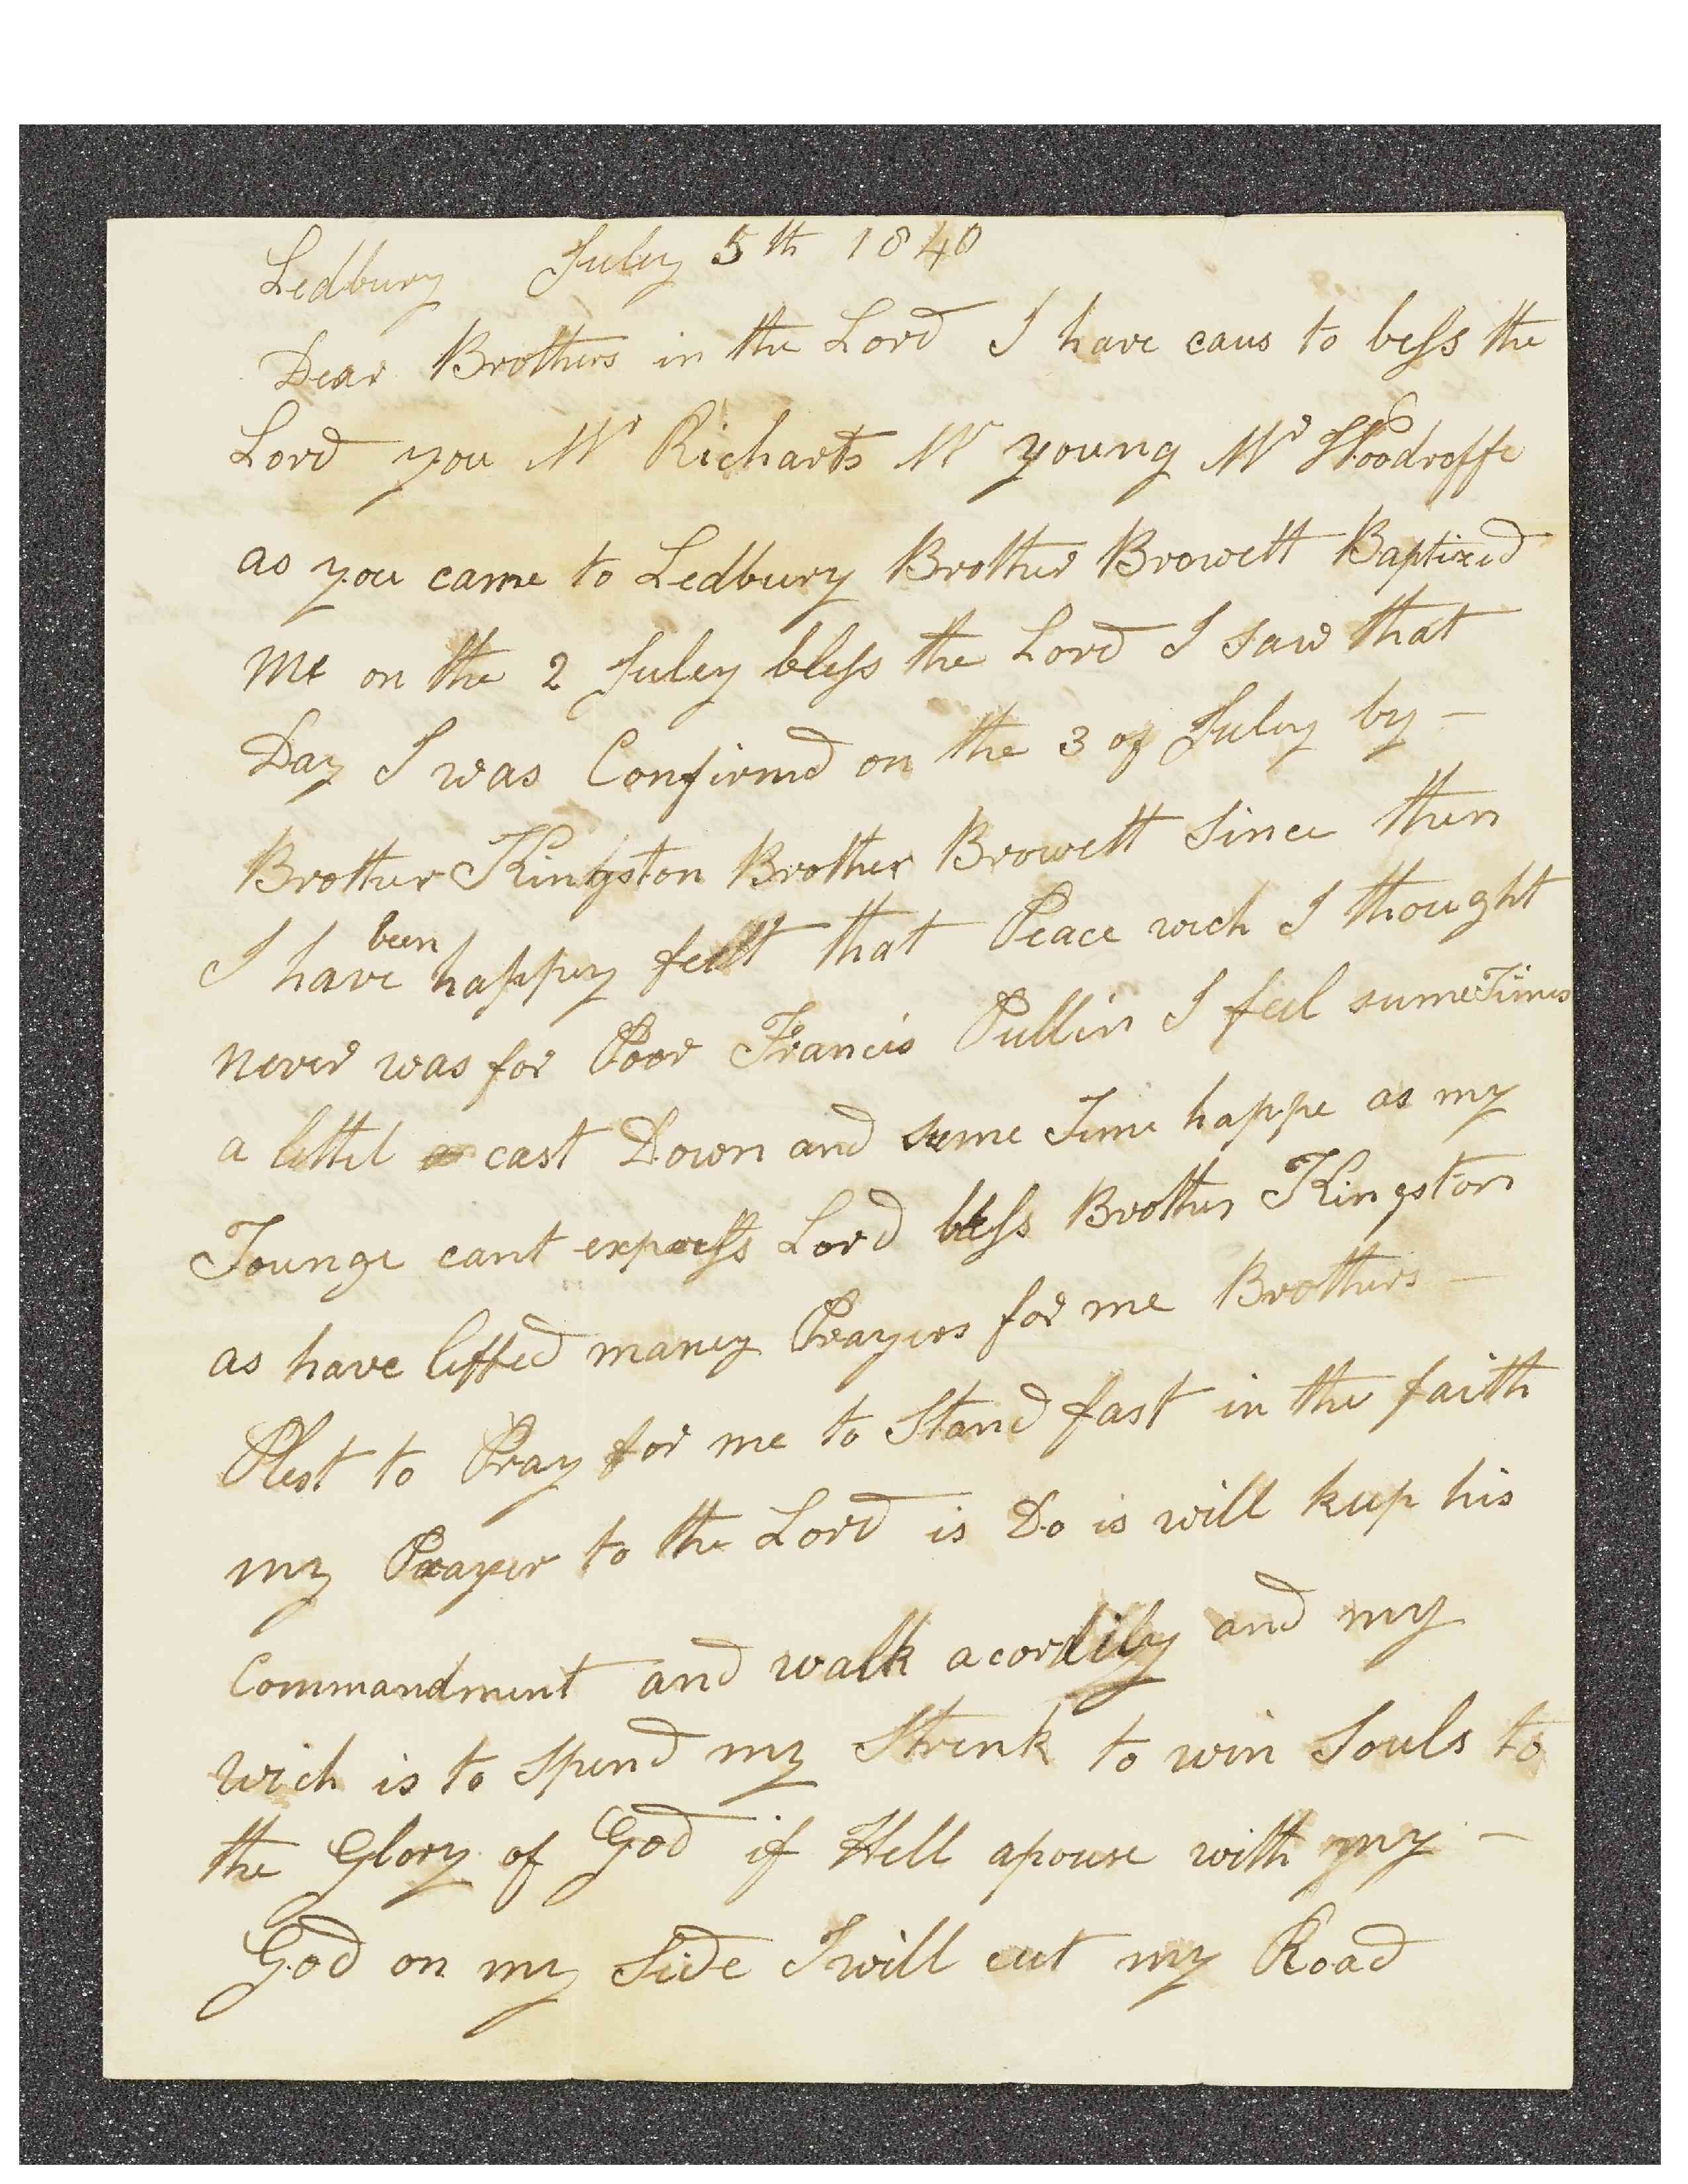 Ledbury July 5th 1840
Dear Brothers in the Lord I have caus to bess the
Lord you Mr Richarts Mr young Mr Woodroffe
as you came to Ledbury Brother Browett Baptized
Me on the 2 Juley bless the Lord I saw that
Day I was Confirmd on the 3 of July by -
Brother Kingston Brother Browett Since then
I have been happey felt that Peace wich I thought
never was for Poor Francis Pullin I feel sume Times
a littel cast Down and sume Time happe as my
Tounge cant express Lord bless Brother Kingston
as have liffted maney Prayers for me Brothers -
Plest to Pray for me to Stand fast in the faith
my Prayer to the Lord is Do is will keep his
Commandment and walk acordily and my
wich is to spend my Strenk to win Souls to
the Glory of God if Hell apouse with my -
God on my Side I will cut my Road